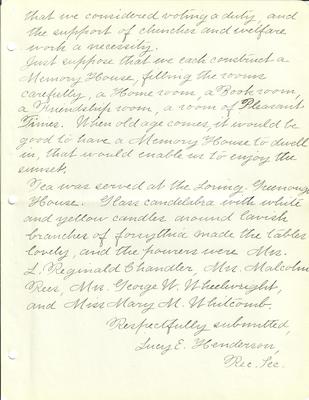 that we considered voting a duty, and
the support of churches and welfare
work a necessity.
Just suppose that we each construct a
Memory House, filling the rooms
carefully, a Home room, a Book room,
a Friendship room, a room of Pleasant
Times. When old age comes, it would be
good to have a Memory House to dwell
in, that would enable us to enjoy the
sunset.
Tea was served at the Loring-Greenough
House. Glass candelabra with white
and yellow candles around lavish
branches of forsythia made the tables
lovely, and the pourers were Mrs.
L. Reginald Chandler, Mrs. Malcolm
Rees, Mrs. George W. Wheelwright,
and Miss Mary M. Whitcomb.
Respectfully submitted,
Lucy E. Henderson,
Rec. Sec.